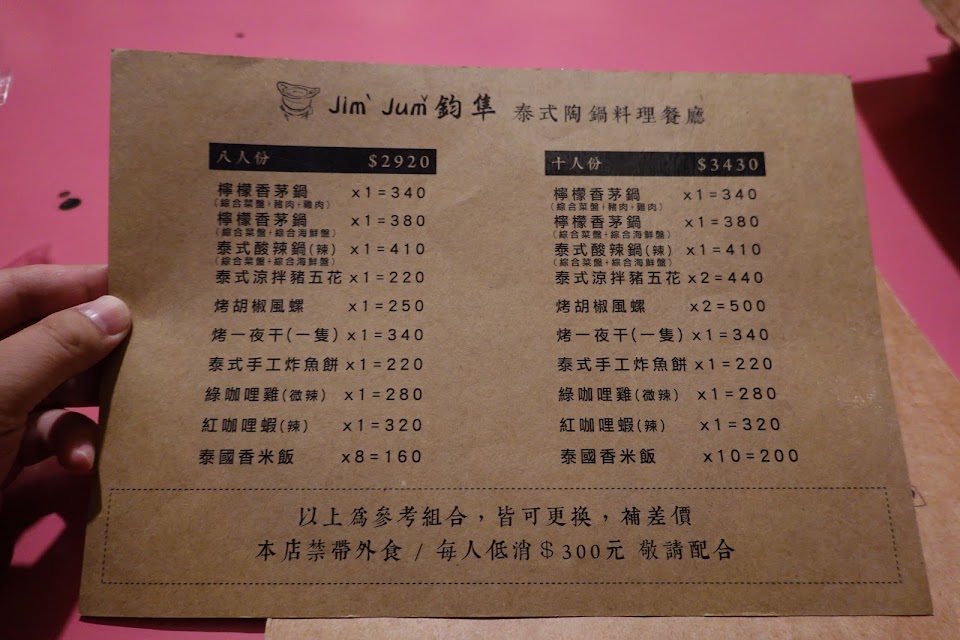 Jimˋ Jumˇ 鈞隼 泰式陶鍋料理餐廳
八人份 $2920
檸檬香茅鍋 x1=340
(綜合菜盤+豬肉+雞肉)
檸檬香茅鍋 x1=380
(綜合菜盤+綜合海鮮盤)
泰式酸辣鍋(辣) x1=410
(綜合菜盤+綜合海鮮盤)
泰式涼拌豬五花 x1=220
烤胡椒風螺 x1=250
烤一夜干(一隻) x1=340
泰式手工炸魚餅 x1=220
綠咖哩雞(微辣) x1=280
紅咖哩蝦(辣) x1=320
泰國香米飯 x8=160
十人份 $3430
檸檬香茅鍋 x1=340
(綜合菜盤+豬肉+雞肉)
檸檬香茅鍋 x1=380
(綜合菜盤+綜合海鮮盤)
泰式酸辣鍋(辣) x1=410
(綜合菜盤+綜合海鮮盤)
泰式涼拌豬五花 x2=440
烤胡椒風螺 x2=500
烤一夜干(一隻) x1=340
泰式手工炸魚餅 x1=220
綠咖哩雞(微辣) x1=280
紅咖哩蝦(辣) x1=320
泰國香米飯 x10=200
以上為參考組合，皆可更換，補差價
本店禁帶外食 / 每人低消$300元 敬請配合